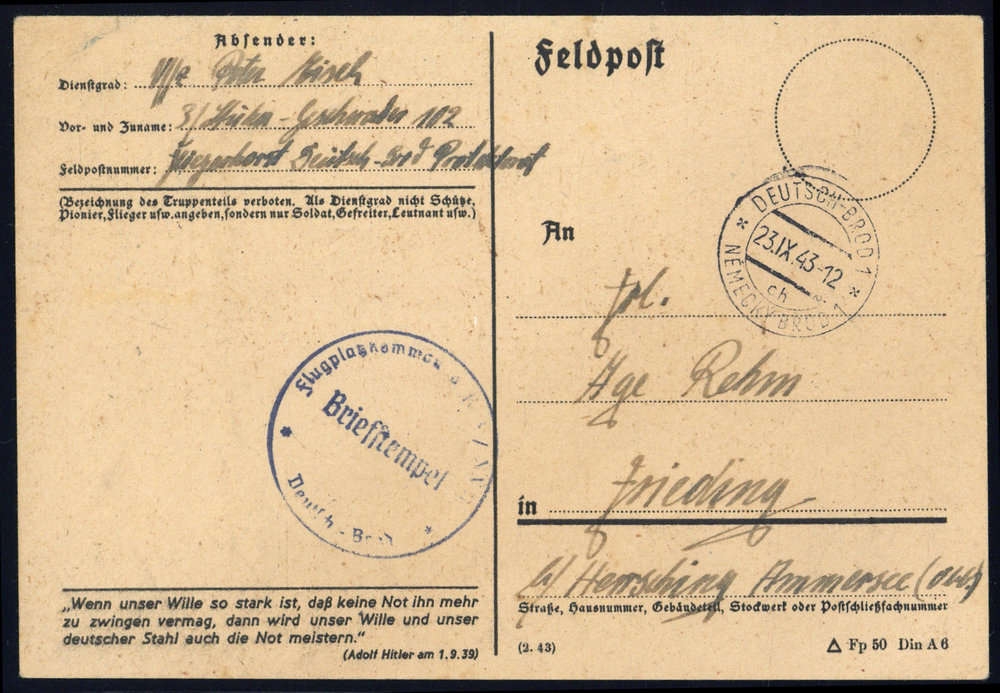 Absender:
Dienstgrad: Uffz Peter
Vor- und Zuname: 3/Stuka-Geschwader 102
Feldpostnummer: Fliegerhorst Deutsch-Brod Protektorat
(Bezeichnung des Truppenteils verboten. Als Dienstgrad nicht Schütze,
Pionier, Flieger usw. angeben, sondern nur Soldat, Gefreiter, Leutnant usw.)
Flugplatzkomman
Briefstempel
Deutsch-Brod
„Wenn unser Wille so stark ist, daß keine Not ihn mehr
zu zwingen vermag, dann wird unser Wille und unser
deutscher Stahl auch die Not meistern.“
(Adolf Hitler am 1.9.39)
Feldpost
DEUTSCH-BROD 1
23.IX.43-12
ch
NĚMECKÝ BROD 1
An
Frl.
Rehm
in Frieding
b/ Herrsching Ammersee
Straße, Hausnummer, Gebäudeteil, Stockwerk oder Postschließfachnummer
(2. 43)
Fp 50 Din A 6